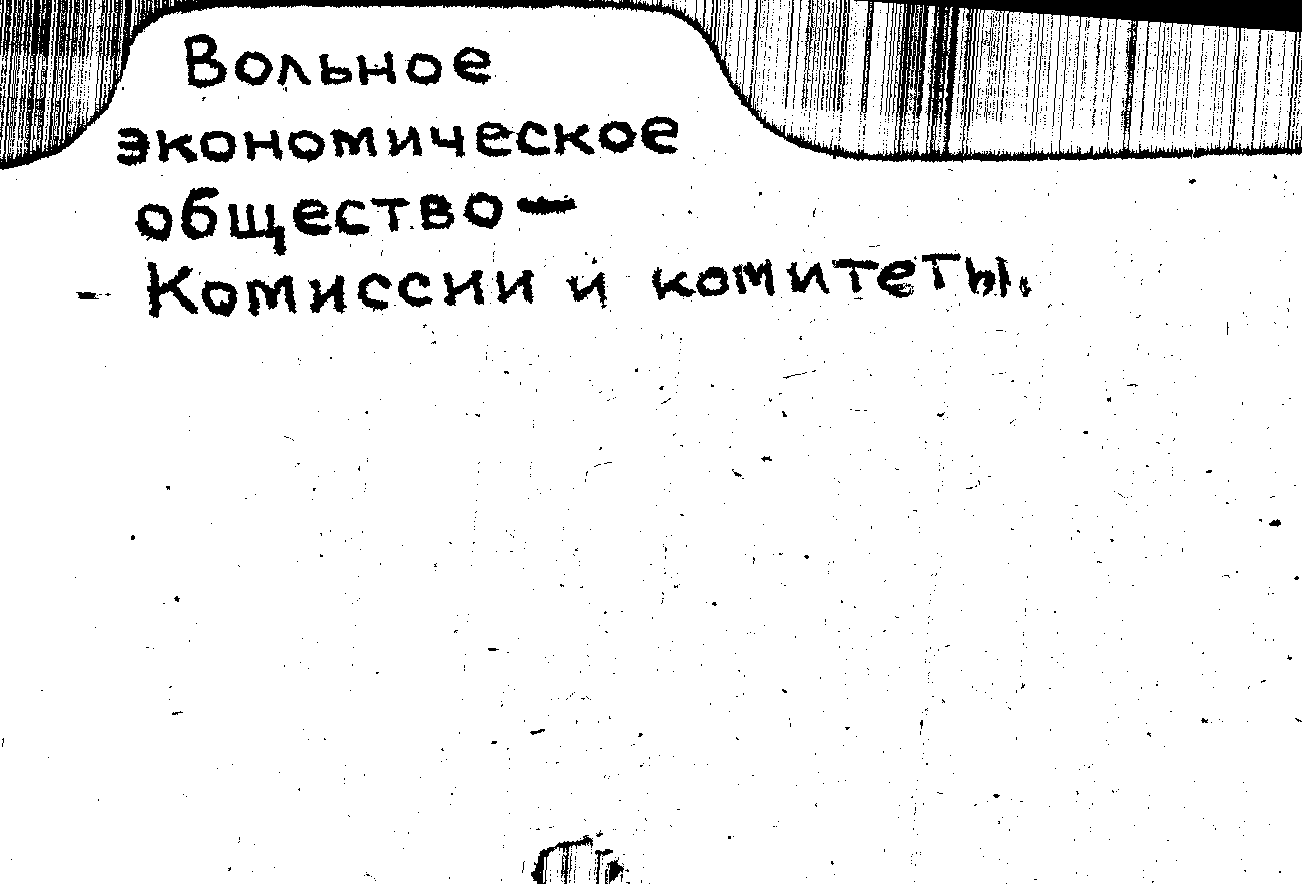 Вольное
экономическое
общество —
- Комиссии и комитеты.